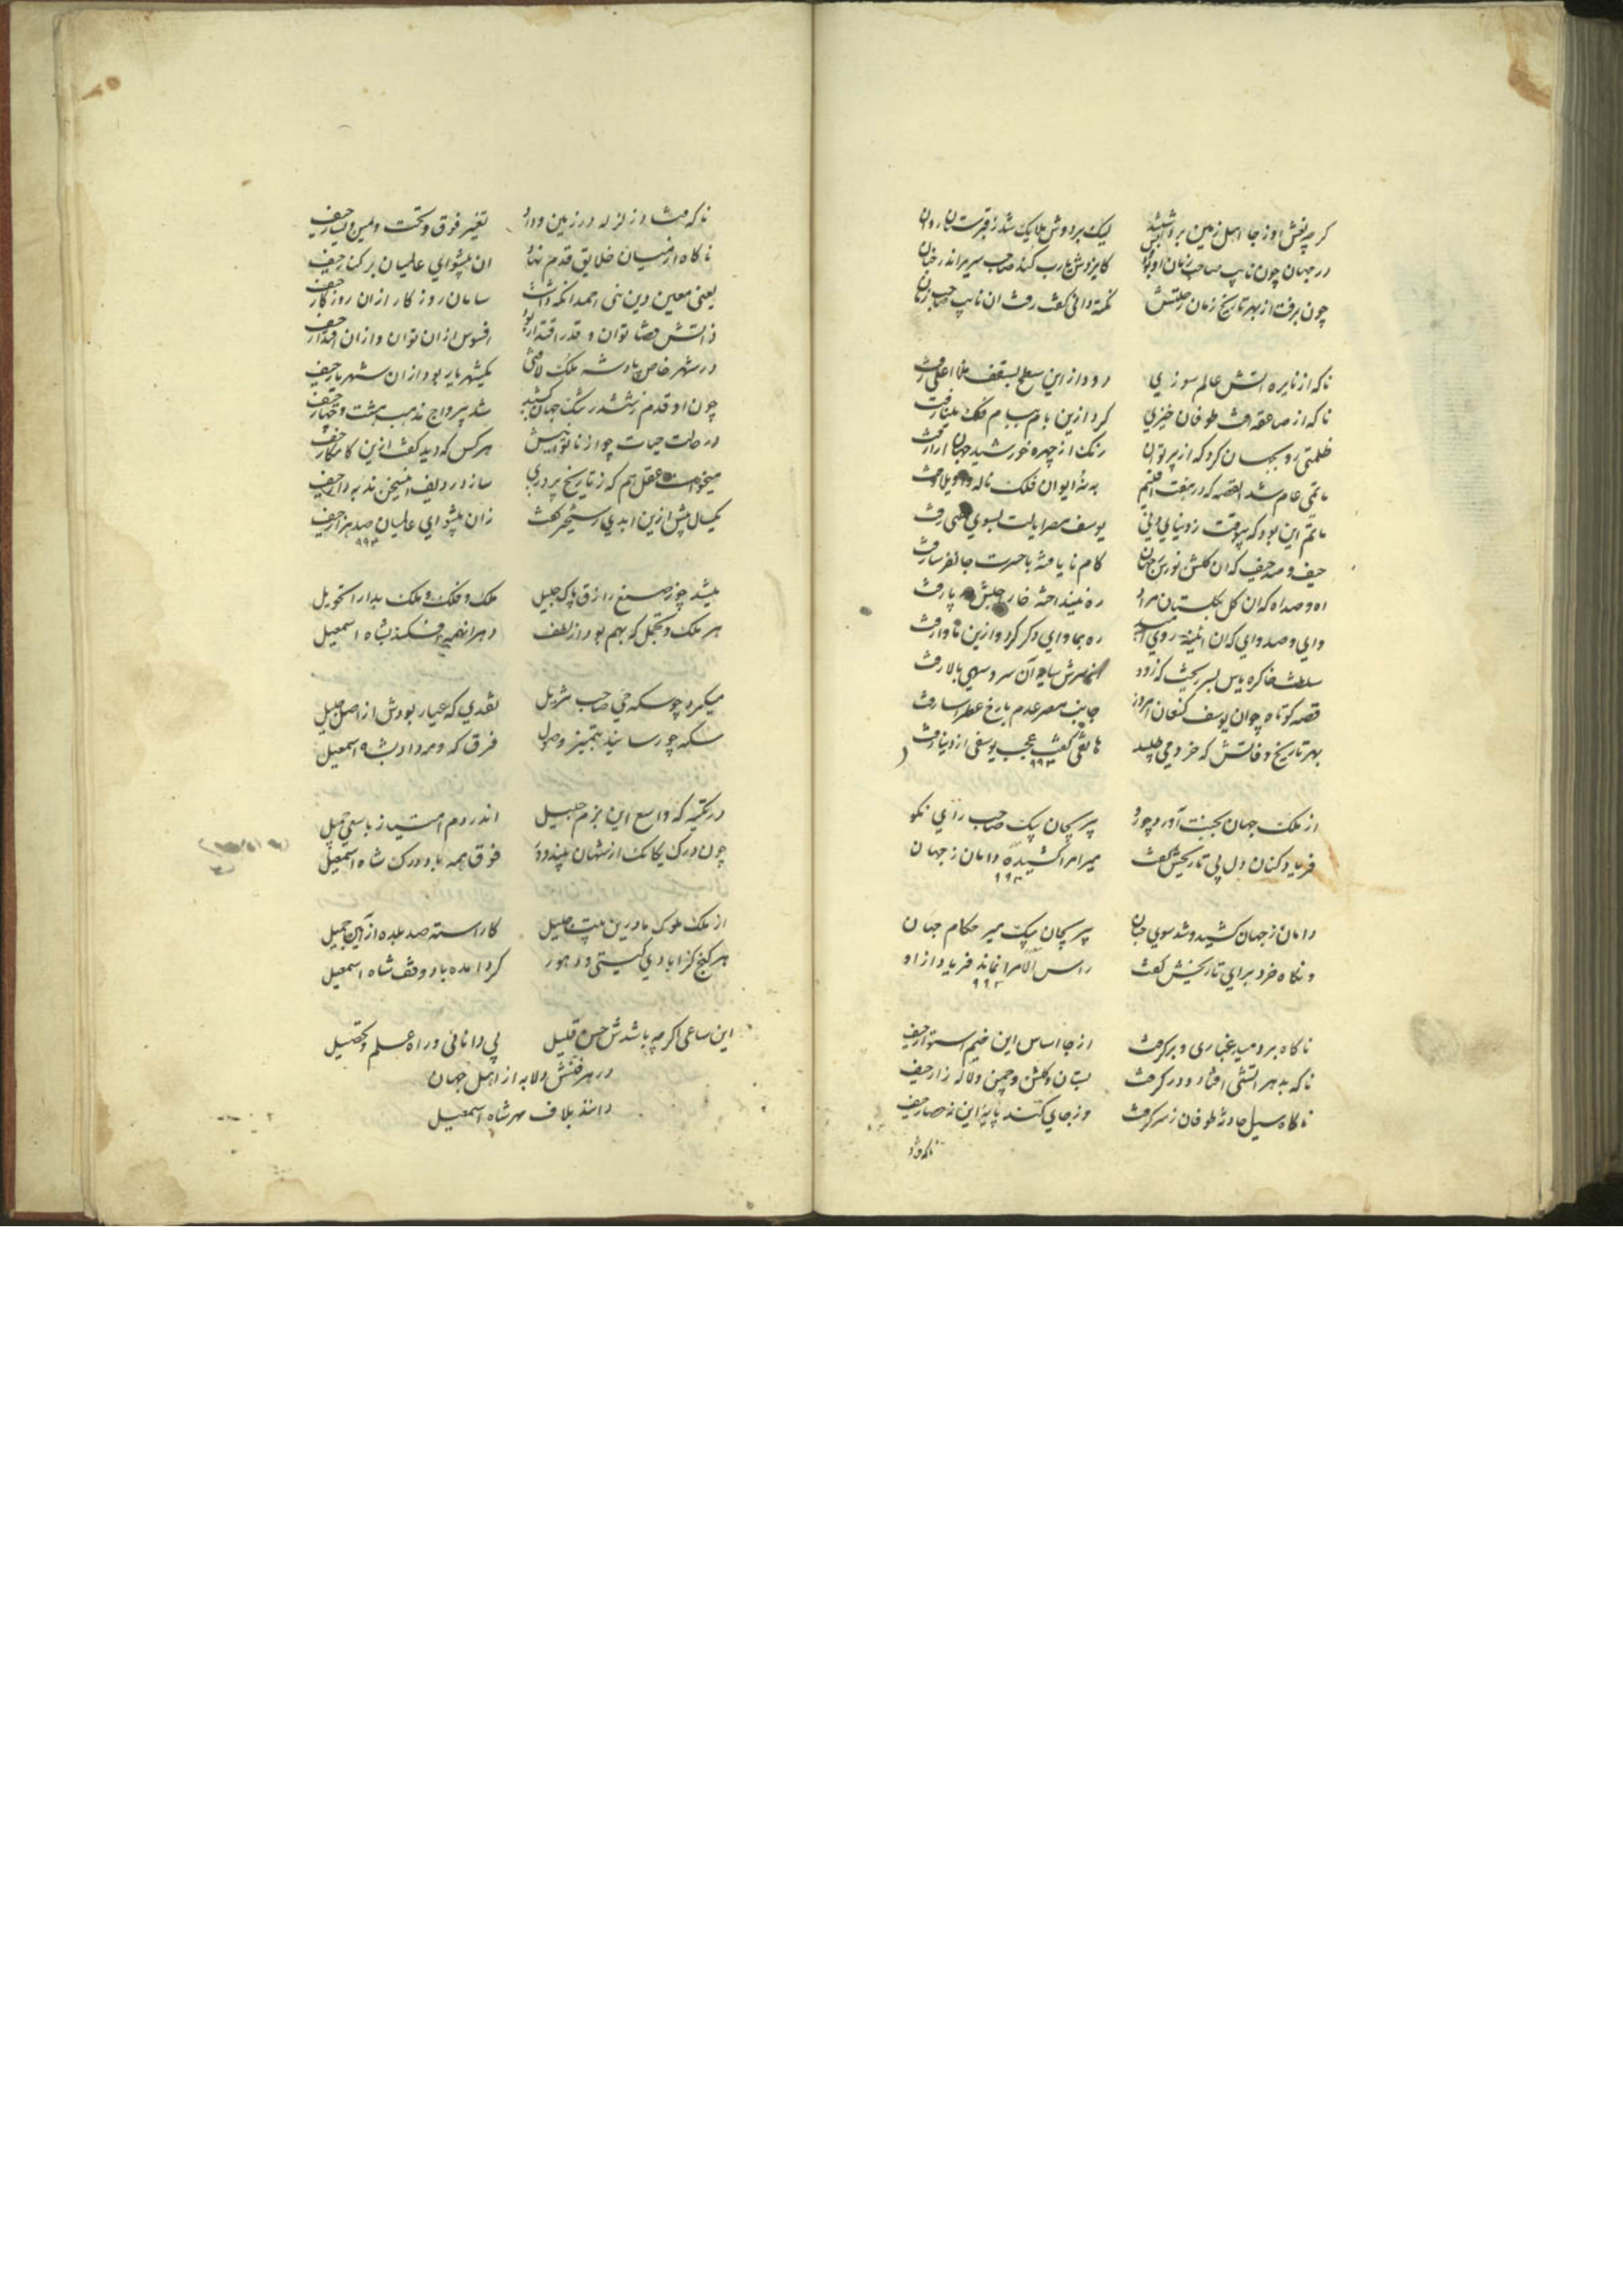 کرچه نعش او ز جا اهل زمین برداشتند لیک بر دوش ملایک شد ز قبرستان روان
در جهان چون نایب صاحب زمان او بود و بس کایزدش یارب کند صاحب سریر اندر جنان
چون برفت از بهر تاریخ زمان رحلتش نکته دانی کفت رفت ان نایب صاحب زمان
ناکه از نایره اتش عالم سوزی دود از این سطح بسقف اعلی رفت
ناکه از صاعقه افت طوفان خیزی کرد ازین بام ببام فلک مینا رفت
ظلمتی رو بجهان کرد که از پرتو ان رنک از چهره خورشید جهان ارا رفت
ماتمی عام شد القصه که در هفت اقلیم به نه ایوان فلک ناله واویلا رفت
ماتم این بود که بیوقت ز دنیای دنی یوسف مصر ایالت بسوی عقبی رفت
حیف و صد حیف که ان کلشن نورس جهان کام نایافته با حسرت جانفرسا رفت
اه و صد اه که ان کل بکلستان مراد ره نینداخته خار اجلش در پا رفت
وای و صد وای که ان اینه روی ره بماوای دکر کرد و ازین ماوا رفت
سلطنت خاک ره یاس بسر ریخت که زود از سرش سایه آن سرو سهی بالا رفت
قصه کوتاه چو ان یوسف کنعان امروز جانب مصر عدم با رخ عطرا سا رفت
بهر تاریخ وفاتش که خرد می طلبید هاتفی کفت عجب یوسفی از دنیا رفت
۹۹۳
از ملک جهان بجنت آورد چو رو پیر بچان بیک صاحب رای نکو
فریاد کنان دل پی تاریخش کفت میر امرا کشیده دامان ز جهان
۹۹۳
دامان ز جهان کشید و شد سوی جنان پیر بچان بیک میر حکام جهان
و نکاه خرد برای تاریخش کفت راس الامرا نماند فریاد از او
۹۹۳
ناکاه بر دمید غباری و بر کرفت از جا اساس این خیم استوار حیف
ناکه بدهر اتشی افتاد و در کرفت بستان و کلشن و چمن و لاله زار حیف
ناکاه سیل حادثه طوفان ز سر کرفت وز جای کند پایه این نه حصار حیف
ناکه فتاد
ناکه فتاد زلزله در زمین و داد تغیر فوق و تحت و یمین و یسار حیف
ناکاه از میان خلایق قدم نهاد ان پیشوای عالمیان بر کنار حیف
یعنی معین دین نبی احمد انکه داشت سامان روزکار از ان روزکار حیف
ذاتش قضا توان و قدر اقتدار بود افسوس از ان توان و از ان اقتدار حیف
در شهر خاص پادشه ملک لافتی یکشهریار بود از ان شهریار حیف
چون او قدم ز ششدر تنک جهان کشید شد بیرواج مذهب هشت و چهار حیف
در حالت حیات چو از ناتوانیش هر کس که دید کفت ازین کامکار حیف
میخواست عقل هم که ز تاریخ پر دری سازد ردیف این سخن ندبه دار حیف
یکسال پیش ازین ابدی رستخیز کفت زان پیشوای عالمیان صد هزار حیف
۹۹۳
میشد چو ز صنع رازق پاک جلیل ملک و فلک و ملک بدارا تحویل
هر ملک و تجمل که بهم بود از لطف دهرانهمه افکند بشاه اسمعیل
میکرد چو سکه حی صاحب تنزیل نقدی که عیار بودش از اصل جلیل
سکه چو رسانید بتمییز وصول فرق که و مه داد بشاه اسمعیل
در تکیه که واسع این بزم جلیل اندر دم امتیاز با سعی جمیل
چون درک یکایک از شهان پیند و د فوق همه باد درک شاه اسمعیل
از ملک ملوک مادرین بیت جلیل کاراسته صد بلده از آیین جمیل
هر کنج کز ابادی کیستی ودهور کردامده باد وقف شاه اسمعیل
این ساعی اکر چه باشدش حسن قلیل پی دانائی در راه علم و تحصیل
در هر فنش دلا به از اهل جهان
دانند بلاف مهر شاه اسمعیل